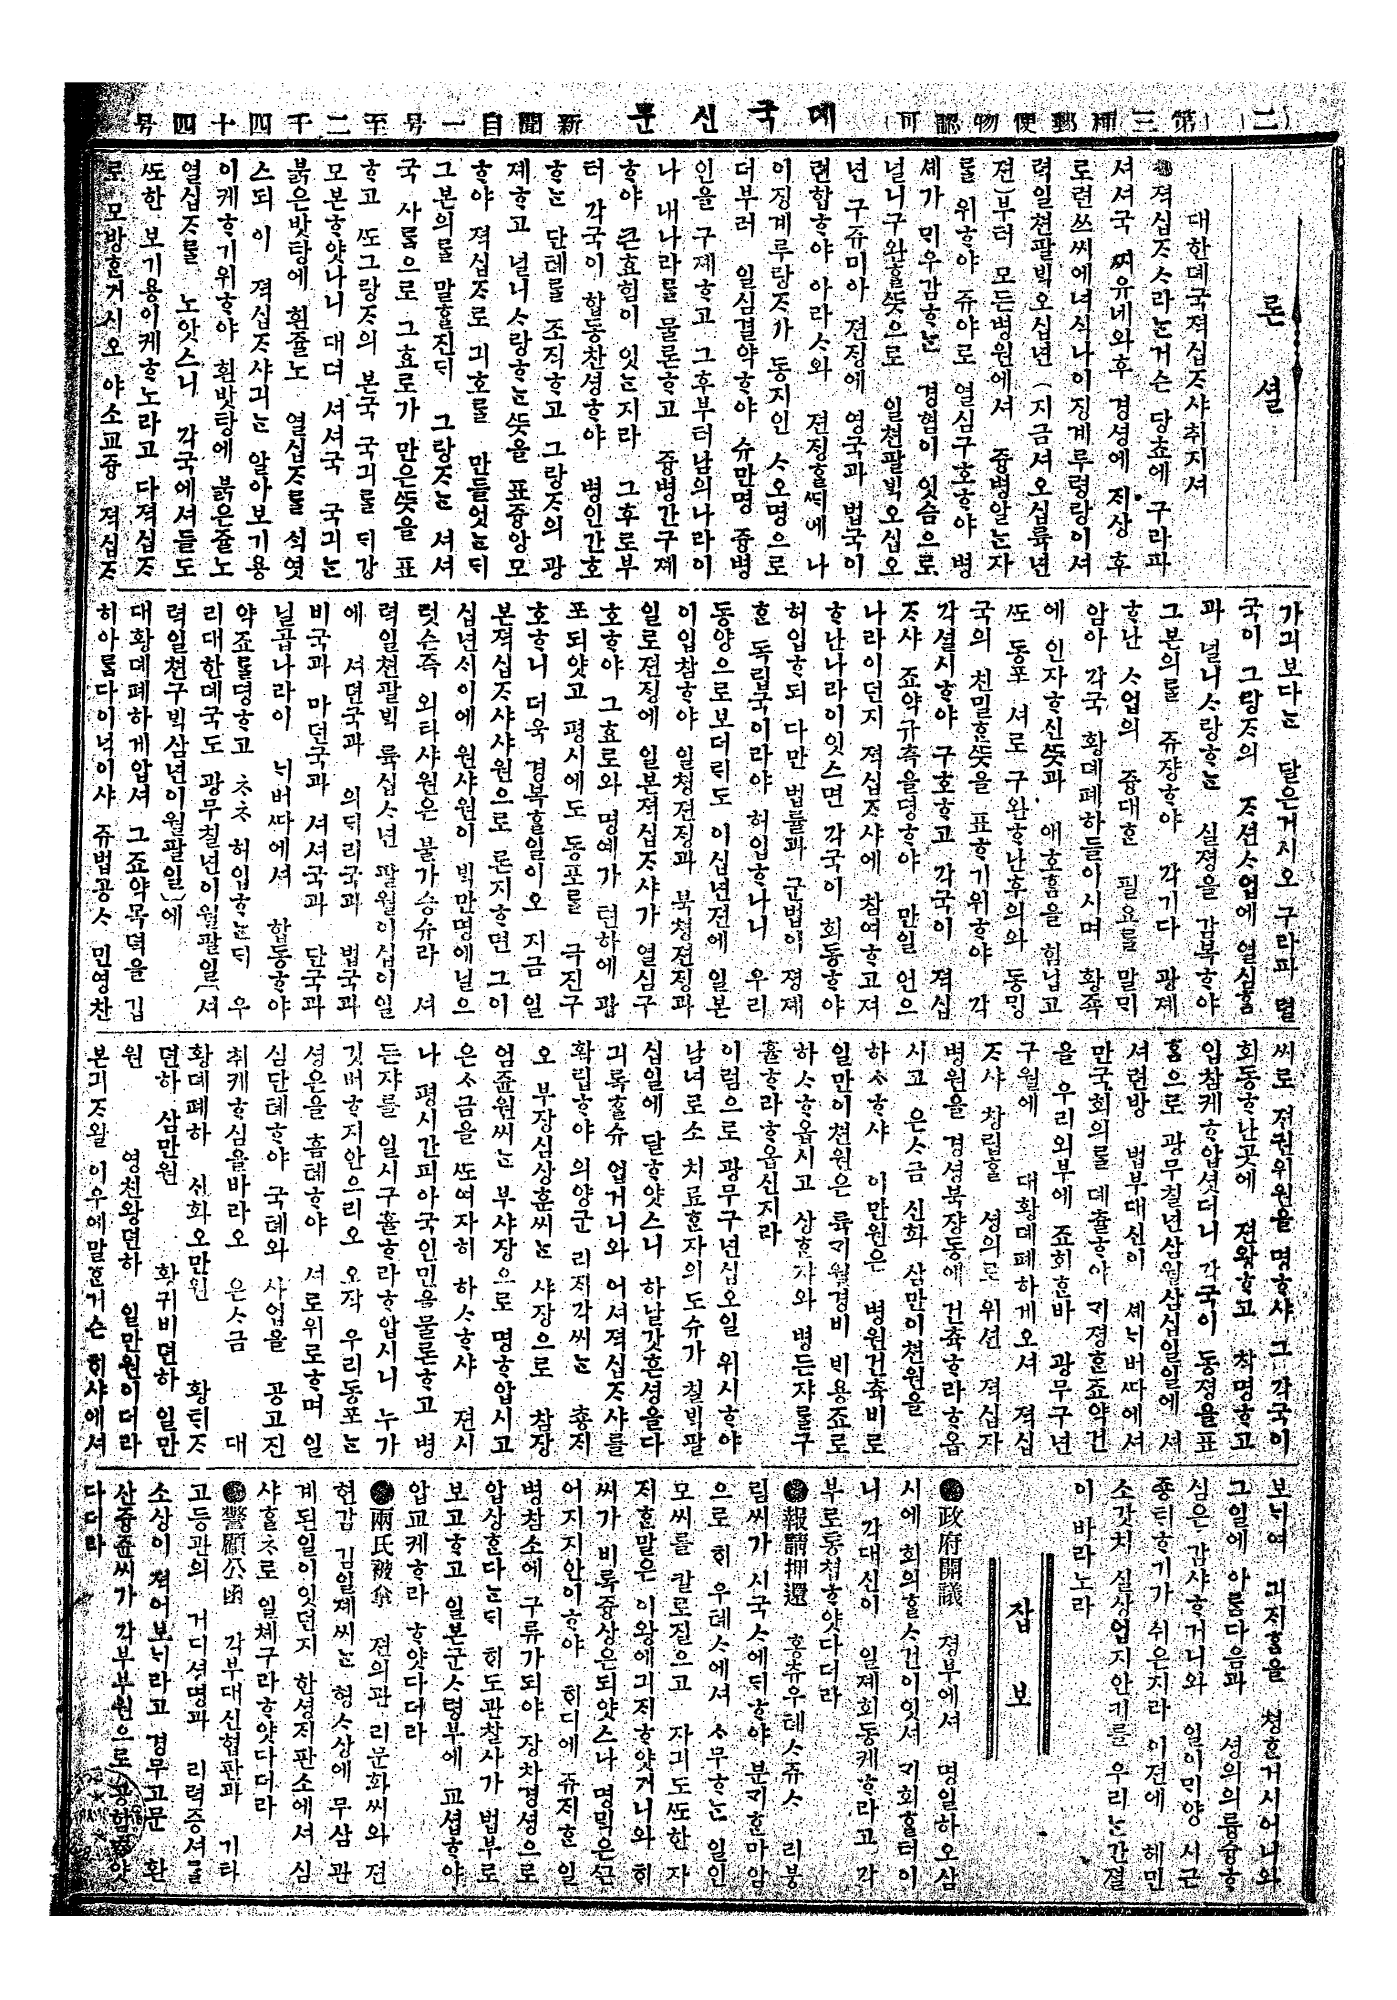 (二) (可認物便郵種三第) 뎨국신문 新聞自一号至二千四十四号
론셜
대한뎨국젹십ᄌᆞ샤취지셔
●젹십ᄌᆞᄉᆞ라ᄂᆞᆫ거슨 당쵸에 구라파
셔셔국 ᄶᅦ유네와후 경셩에 지샹 후
로련쓰씨에녀식나이징계루령랑이셔
력일쳔팔ᄇᆡᆨ오십년 (지금셔오십륙년
젼)부터 모든병원에셔 즁병알ᄂᆞᆫ쟈
ᄅᆞᆯ 위ᄒᆞ야 쥬야로 열심구호ᄒᆞ야 병
셰가 ᄆᆡ우감ᄒᆞᄂᆞᆫ 경험이 잇슴으로
널니구완ᄒᆞᆯᄯᅳᆺ으로 일쳔팔ᄇᆡᆨ오십오
년 구쥬미아 젼ᄌᆡᆼ에 영국과 법국이
련합ᄒᆞ야 아라ᄉᆞ와 젼ᄌᆡᆼᄒᆞᆯᄯᅢ에 나
이징계루랑ᄌᆞ가 동지인 ᄉᆞ오명으로
더부러 일심결약ᄒᆞ야 슈만명 즁병
인을 구졔ᄒᆞ고 그후부터남의나라이
나 내나라를 물론ᄒᆞ고 즁병간구졔
ᄒᆞ야 큰효험이 잇ᄂᆞᆫ지라 그후로부
터 각국이 합동찬셩ᄒᆞ야 병인간호
ᄒᆞᄂᆞᆫ 단톄를 조직ᄒᆞ고 그랑ᄌᆞ의 광
졔ᄒᆞ고 널니ᄉᆞ랑ᄒᆞᄂᆞᆫᄯᅳᆺ을 표즁앙모
ᄒᆞ야 젹십ᄌᆞ로 긔호를 만들엇ᄂᆞᆫᄃᆡ
그본의를 말ᄒᆞᆯ진ᄃᆡ 그랑ᄌᆞᄂᆞᆫ 셔셔
국 사ᄅᆞᆷ으로 그효로가 만은ᄯᅳᆺ을 표
ᄒᆞ고 ᄯᅩ그랑ᄌᆞ의 본국 국긔를 ᄃᆡ강
모본ᄒᆞ얏나니 대뎌 셔셔국 국긔ᄂᆞᆫ
붉은밧탕에 흰쥴노 열십ᄌᆞ를 석엿
스되 이 젹십ᄌᆞ샤긔ᄂᆞᆫ 알아보기용
이케ᄒᆞ기위ᄒᆞ야 흰밧탕에 붉은쥴노
열십ᄌᆞ를 노앗스니 각국에셔들도
ᄯᅩ한 보기용이케ᄒᆞ노라고 다젹십ᄌᆞ
로 모방ᄒᆞᆫ거시오 야소교즁 젹십ᄌᆞ
가긔보다ᄂᆞᆫ 달은거시오 구라파 렬
국이 그랑ᄌᆞ의 ᄌᆞ션ᄉᆞ업에 열심ᄒᆞᆷ
과 널니ᄉᆞ랑ᄒᆞᄂᆞᆫ 실졍을 감복ᄒᆞ야
그본의를 쥬쟝ᄒᆞ야 각기다 광졔
ᄒᆞ난 ᄉᆞ업의 즁대ᄒᆞᆫ 필요를 말ᄆᆡ
암아 각국 황뎨폐하들이시며 황족
에 인자ᄒᆞ신ᄯᅳᆺ과 애호홈을 힘닙고
ᄯᅩ 동포 셔로 구완ᄒᆞ난후의와 동ᄆᆡᆼ
국의 친밀ᄒᆞᆫᄯᅳᆺ을 표ᄒᆞ기위ᄒᆞ야 각
각셜시ᄒᆞ야 구호ᄒᆞ고 각국이 젹십
ᄌᆞ샤 죠약규측을뎡ᄒᆞ야 만일 언으
나라이던지 젹십ᄌᆞ샤에 참여ᄒᆞ고져
ᄒᆞ난나라이잇스면 각국이 회동ᄒᆞ야
허입ᄒᆞ되 다만 법률과 군법이 졍졔
ᄒᆞᆫ 독립국이라야 허입ᄒᆞ나니 우리
동양으로보더ᄅᆡ도 이십년젼에 일본
이입참ᄒᆞ야 일쳥젼ᄌᆡᆼ과 북쳥젼ᄌᆡᆼ과
일로젼ᄌᆡᆼ에 일본젹십ᄌᆞ샤가 열심구
호ᄒᆞ야 그효로와 명예가 텬하에 광
포되얏고 평시에도 동포를 극진구
호ᄒᆞ니 더욱 경복ᄒᆞᆯ일이오 지금 일
본젹십ᄌᆞ샤샤원으로 론지ᄒᆞ면 그이
십년ᄉᆡ이에 원샤원이 ᄇᆡᆨ만명에널으
럿슨즉 외타샤원은 불가승슈라 셔
력일쳔팔ᄇᆡᆨ 륙십ᄉᆞ년 팔월이십이일
에 셔뎐국과 의ᄃᆡ리국과 법국과
비국과 마던국과 셔셔국과 단국과
닐곱나라이 ᄂᆡ버ᄯᅡ에셔 합동ᄒᆞ야
약죠를뎡ᄒᆞ고 ᄎᆞᄎᆞ 허입ᄒᆞᄂᆞᆫᄃᆡ 우
리대한뎨국도 광무칠년이월팔일(셔
력일쳔구ᄇᆡᆨ삼년이월팔일)에
대황뎨폐하게압셔 그죠약목뎍을 깁
히아ᄅᆞᆷ다이녁이샤 쥬법공ᄉᆞ 민영찬
씨로 젼권위원을 명ᄒᆞ샤 그 각국이
회동ᄒᆞ난곳에 젼왕ᄒᆞ고 챡명ᄒᆞ고
입참케ᄒᆞ압셧더니 각국이 동졍을표
ᄒᆞᆷ으로 광무칠년삼월삼십일일에 셔
셔련방 법부대신이 셰ᄂᆡ버ᄯᅡ에셔
만국회의를 뎨츌ᄒᆞ야 ᄀᆡ졍ᄒᆞᆫ죠약건
을 우리외부에 죠회ᄒᆞᆫ바 광무구년
구월에 대황뎨폐하게오셔 젹십
ᄌᆞ샤 창립ᄒᆞᆯ 셩의로 위션 젹십자
병원을 경셩북쟝동에 건츅ᄒᆞ라ᄒᆞ옵
시고 은ᄉᆞ금 신화 삼만이쳔원을
하ᄉᆞᄒᆞ샤 이만원은 병원건츅비로
일만이쳔원은 륙ᄀᆡ월경비 비용죠로
하ᄉᆞᄒᆞ옵시고 상ᄒᆞᆫ쟈와 병든쟈를구
휼ᄒᆞ라ᄒᆞ옵신지라
이럼으로 광무구년십오일 위시ᄒᆞ야
남녀로소 치료ᄒᆞᆫ자의도슈가 칠ᄇᆡᆨ팔
십일에 달ᄒᆞ얏스니 하날갓흔셩을다
긔록ᄒᆞᆯ슈 업거니와 어셔젹십ᄌᆞ샤를
확립ᄒᆞ야 의양군 리ᄌᆡ각씨ᄂᆞᆫ 춍ᄌᆡ
오 부쟝심샹훈씨ᄂᆞᆫ 샤쟝으로 참쟝
엄쥰원씨ᄂᆞᆫ 부샤쟝으로 명ᄒᆞ압시고
은ᄉᆞ금을 ᄯᅩ여자히 하ᄉᆞᄒᆞ샤 젼시
나 평시간피아국인민을물론ᄒᆞ고 병
든쟈를 일시구휼ᄒᆞ라ᄒᆞ압시니 누가
깃버ᄒᆞ지안으리오 오작 우리동포ᄂᆞᆫ
셩은을 흠톄ᄒᆞ야 셔로위로ᄒᆞ며 일
심단톄ᄒᆞ야 국톄와 사업을 공고진
취케ᄒᆞ심을바라오 은ᄉᆞ금 대
황뎨폐하 신화오만원 황ᄐᆡᄌᆞ
뎐하 삼만원 황귀비뎐하 일만
원 영친왕뎐하 일만원이더라
본긔ᄌᆞ왈 이우에말ᄒᆞᆫ거슨 ᄒᆡ샤에셔
보ᄂᆡ여 긔ᄌᆡᄒᆞᆷ을 쳥ᄒᆞᆫ거시어니와
그일에 아ᄅᆞᆷ다음과 셩의의륭슝ᄒᆞ
심은 감샤ᄒᆞ거니와 일이ᄆᆡ양 시근
죵ᄐᆡᄒᆞ기가 쉬은지라 이젼에 혜민
소갓치 실샹업지안키를 우리ᄂᆞᆫ간졀
이 바라노라
잡보
●政府開議 졍부에셔 명일하오삼
시에 회의ᄒᆞᆯᄉᆞ건이잇셔 ᄀᆡ회ᄒᆞᆯ터이
니 각대신이 일졔회동케ᄒᆞ라고 각
부로통쳡ᄒᆞ얏다더라
●報請押還 홍쥬우톄ᄉᆞ쥬ᄉᆞ 리붕
림씨가 시국ᄉᆞ에ᄃᆡᄒᆞ야 분ᄀᆡᄒᆞᆫ마암
으로 ᄒᆡ 우톄ᄉᆞ에셔 ᄉᆞ무ᄒᆞᄂᆞᆫ 일인
모씨를 칼로질으고 자긔도ᄯᅩ한 자
ᄌᆡᄒᆞᆫ말은 이왕에긔ᄌᆡᄒᆞ얏거니와 ᄒᆡ
씨가 비록즁샹은되얏스나 명ᄆᆡᆨ은ᄭᅳᆫ
어지지안이ᄒᆞ야 ᄒᆡ디에 쥬ᄌᆡᄒᆞᆫ 일
병참소에 구류가되야 쟝차경셩으로
압샹ᄒᆞᆫ다ᄂᆞᆫᄃᆡ ᄒᆡ도관찰사가 법부로
보고ᄒᆞ고 일본군ᄉᆞ령부에 교셥ᄒᆞ야
압교케ᄒᆞ라 ᄒᆞ얏다더라
●兩氏被拿 젼의관 리문화씨와 젼
현감 김일졔씨ᄂᆞᆫ 형ᄉᆞ샹에 무삼 관
계된일이잇던지 한셩ᄌᆡ판소에셔 심
샤ᄒᆞᆯᄎᆞ로 일쳬구라ᄒᆞ얏다더라
●警顧公函 각부대신협판과 기타
고등관의 거디셩명과 리력증셔를
소샹이 젹어보ᄂᆡ라고 경무고문 환
산즁쥰씨가 각부부원으로 공함ᄒᆞ얏
다더라